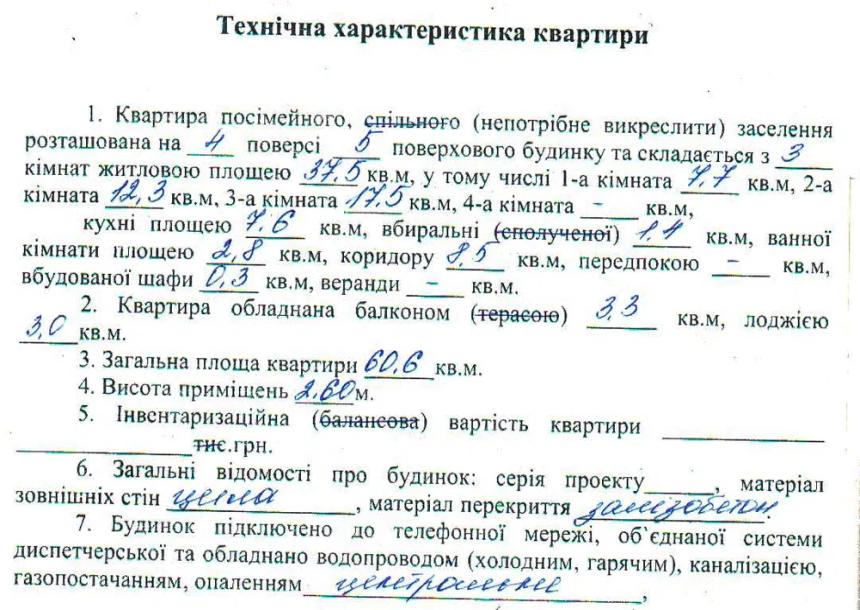 Технічна характеристика квартири
1. Квартира посімейного, спільного (непотрібне викреслити) заселення
розташована на 4 поверсі 5 поверхового будинку та складається з 3
кімнат житловою площею 37,5 кв.м, у тому числі 1-а кімната 7,7 кв.м, 2-а
кімната 12,3 кв.м, 3-а кімната 17,5 кв.м, 4-а кімната - кв.м,
кухні площею 7,6 кв.м, вбиральні (сполученої) 1,4 кв.м, ванної
кімнати площею 2,8 кв.м, коридору 8,5 кв.м, передпокою - кв.м,
вбудованої шафи 0,3 кв.м, веранди - кв.м.
2. Квартира обладнана балконом (терасою) 3,3 кв.м, лоджією
3,0 кв.м.
3. Загальна площа квартири 60,6 кв.м.
4. Висота приміщень 2,60 м.
5. Інвентаризаційна (балансова) вартість квартири
тис.грн.
6. Загальні відомості про будинок: серія проекту______, матеріал
зовнішніх стін цегла, матеріал перекриття залізобетон.
7. Будинок підключено до телефонної мережі, об'єднаної системи
диспетчерської та обладнано водопроводом (холодним, гарячим), каналізацією,
газопостачанням, опаленням центральне,